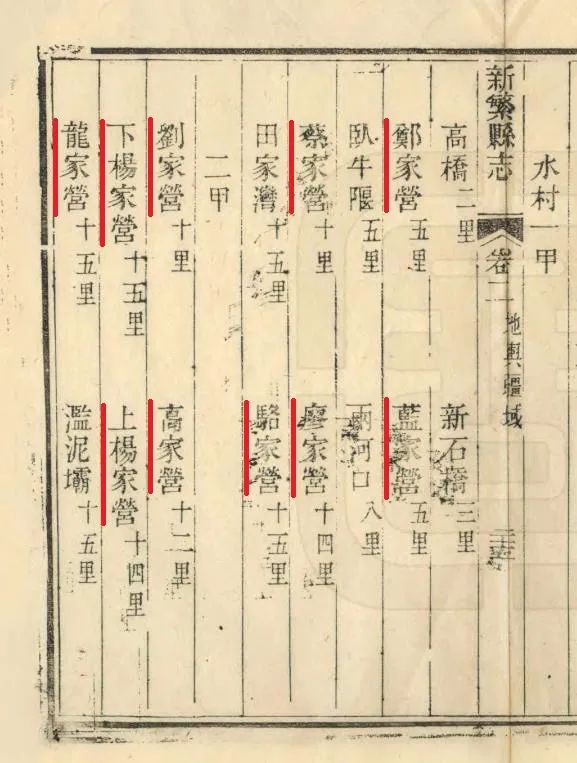 水村一甲
新繁縣志 卷二 地輿疆域
高橋二里 新石橋三里
鄭家營五里 藍家營五里
臥牛堰五里 兩河口八里
蔡家營十里 廖家營十四里
田家灣十五里 駱家營十五里
二甲
劉家營十里 高家營十二里
下楊家營十五里 上楊家營十四里
龍家營十五里 濫泥壩十五里